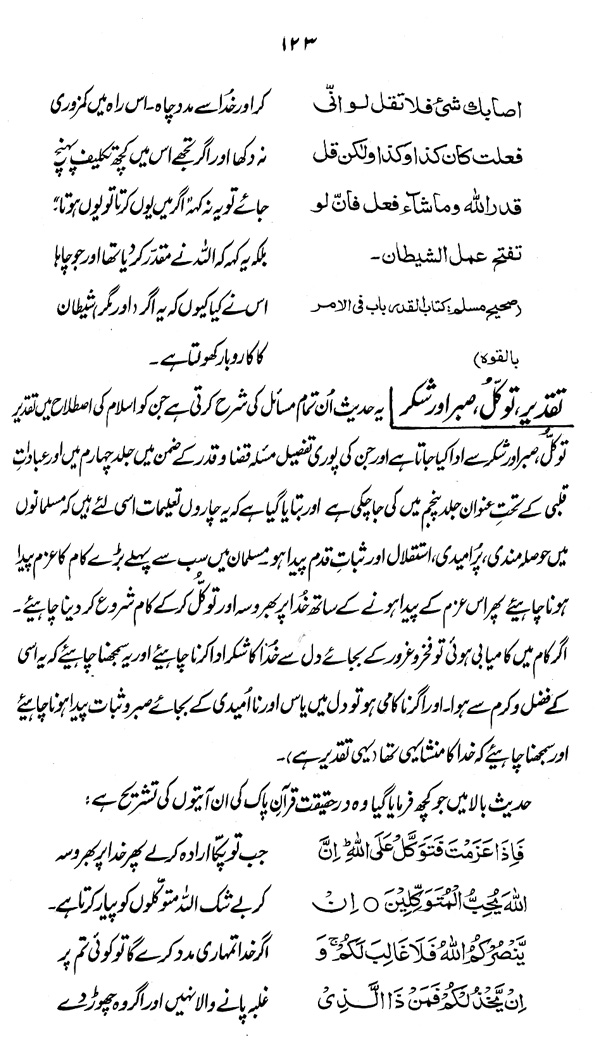 ۱۲۳
اصابك شئ فلا تقل لو انّی
فعلت كان كذا وكذا ولٰكن قل
قدر الله وما شاء فعل فانّ لو
تفتح عمل الشیطان۔
(صحیح مسلم: کتاب القدر، باب فی الامر
بالقوة)
کر اور خُدا سے مدد چاہ۔ اس راہ میں کمزوری
نہ دکھا اور اگر تجھے اس میں کچھ تکلیف پہنچ
جائے تو یہ نہ کہہ "اگر میں یوں کرتا تو یوں ہوتا"،
بلکہ یہ کہہ کہ اللہ نے مقدّر کر دیا تھا اور جو چاہا
اس نے کیا کیوں کہ یہ اگر (اور مگر) شیطان
کا کاروبار کھولتا ہے۔
تقدیر، توکّل، صبر اور شکر یہ حدیث اُن تمام مسائل کی شرح کرتی ہے جن کو اسلام کی اصطلاح میں تقدیر
توکّل، صبر اور شکر سے ادا کیا جاتا ہے اور جن کی پوری تفصیل مسئلہ قضا و قدر کے ضمن میں جلد چہارم میں اور عباداتِ
قلبی کے تحتِ عنوان جلد پنجم میں کی جا چکی ہے اور بتایا گیا ہے کہ یہ چاروں تعلیمات اسی لئے ہیں کہ مسلمانوں
میں حوصلہ مندی، پُر امیدی، استقلال اور ثباتِ قدم پیدا ہو۔ مسلمان میں سب سے پہلے بڑے کام کا عزم پیدا
ہونا چاہیئے پھر اس عزم کے پیدا ہونے کے ساتھ خُدا پر بھروسہ اور توکّل کر کے کام شروع کر دینا چاہیئے۔
اگر کام میں کامیابی ہوئی تو فخر و غرور کے بجائے دل سے خُدا کا شکر ادا کرنا چاہیئے اور یہ سمجھنا چاہیئے کہ یہ اسی
کے فضل و کرم سے ہوا۔ اور اگر ناکامی ہو تو دل میں یاس اور نا اُمیدی کے بجائے صبر و ثبات پیدا ہونا چاہیئے
اور سمجھنا چاہیئے کہ خدا کا منشا یہی تھا (یہی تقدیر ہے)۔
حدیث بالا میں جو کچھ فرمایا گیا وہ در حقیقت قرآنِ پاک کی ان آیتوں کی تشریح ہے:
فَاِذَا عَزَمْتَ فَتَوَكَّلْ عَلَى اللهِ ؕ اِنَّ
اللهَ يُحِبُّ الْمُتَوَكِّلِيْنَ ○ اِنْ
يَّنْصُرْكُمُ اللهُ فَلَا غَالِبَ لَكُمْ ۚ وَ
اِنْ يَّخْذُلْكُمْ فَمَنْ ذَا الَّذِيْ
جب تو پکّا ارادہ کر لے پھر خدا پر بھروسہ
کر بے شک اللہ متوکّلوں کو پیار کرتا ہے۔
اگر خدا تمہاری مدد کرے گا تو کوئی تم پر
غلبہ پانے والا نہیں اور اگر وہ چھوڑ دے